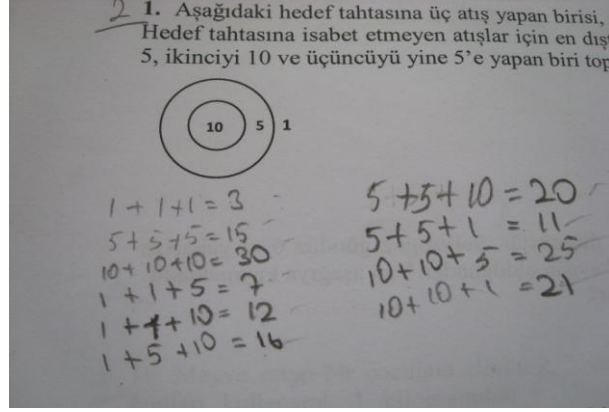 2 1. Aşağıdaki hedef tahtasına üç atış yapan birisi,
Hedef tahtasına isabet etmeyen atışlar için en dışt
5, ikinciyi 10 ve üçüncüyü yine 5'e yapan biri top
10 5 1
1 + 1 + 1 = 3
5 + 5 + 5 = 15
10 + 10 + 10 = 30
1 + 1 + 5 = 7
1 + 1 + 10 = 12
1 + 5 + 10 = 16
5 + 5 + 10 = 20
5 + 5 + 1 = 11
10 + 10 + 5 = 25
10 + 10 + 1 = 21